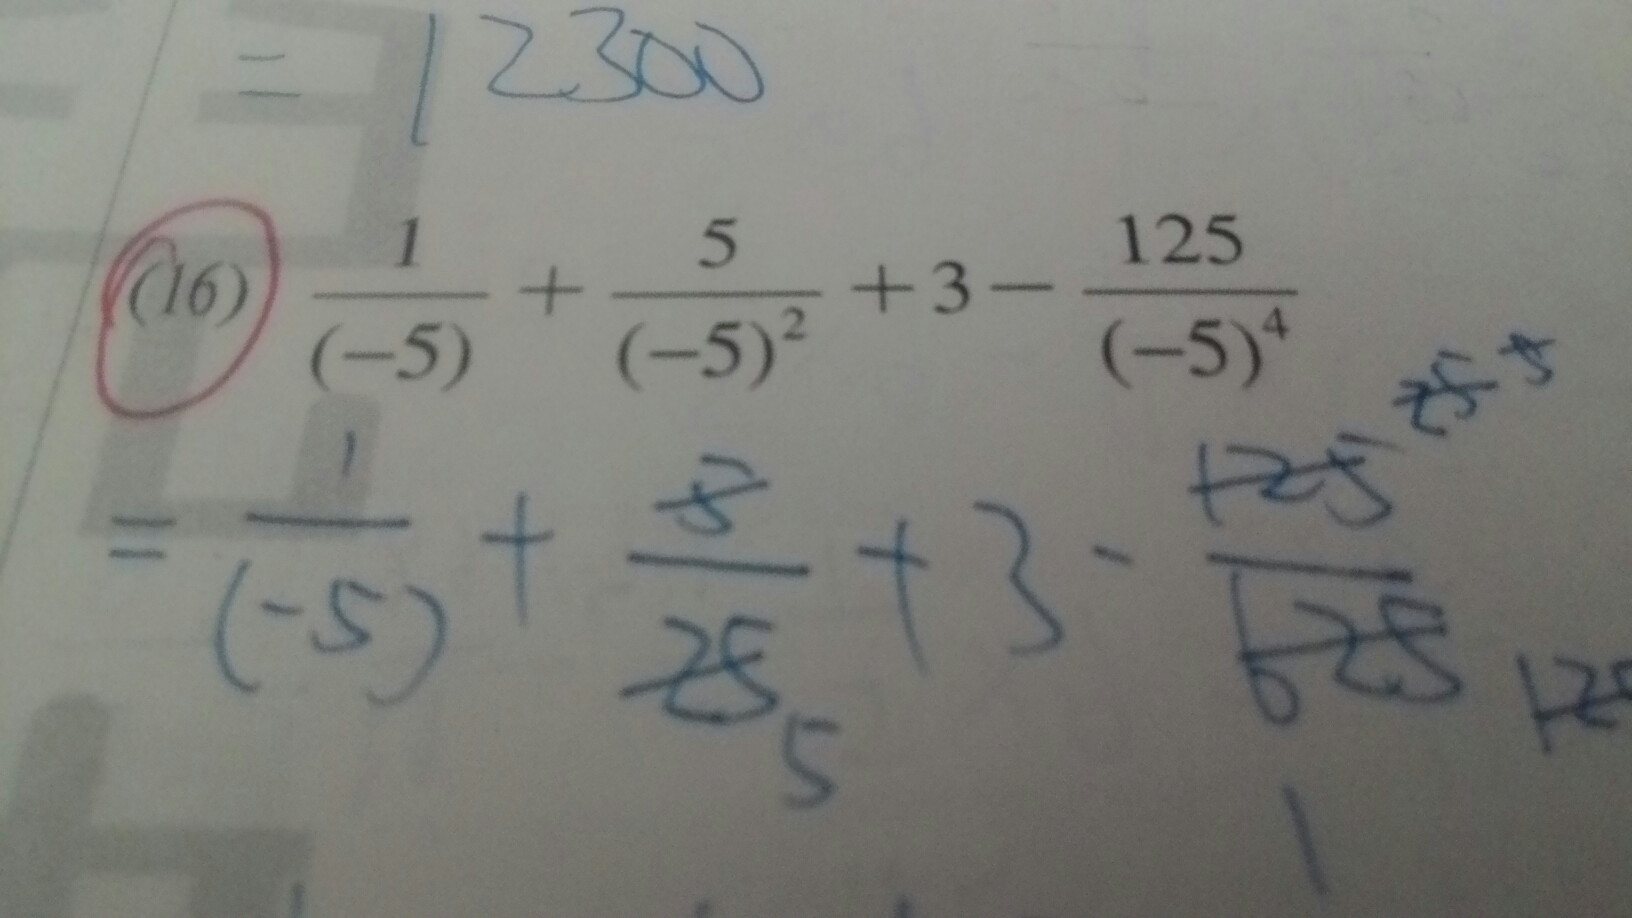 = 12300
(16) 1/(−5) + 5/(−5)² + 3 − 125/(−5)⁴
= 1/(-5) + 5/25 + 3 - 125/625
5